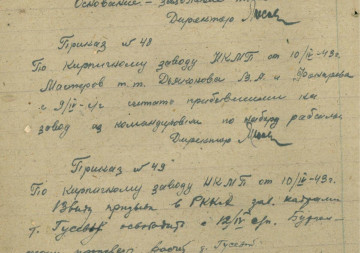 Основание – заявление
Директор
Приказ № 48
По Кирпичному заводу НКМП от 10/IV-43г.
Мастеров т.т. Демьянова В.А. и
с 9/IV-с/г считать прибывшими на
завод из командировки по набору рабсилы
Директор
Приказ № 49
По Кирпичному заводу НКМП от 10/IV-43г.
Ввиду призыва в РККА зав. кадрами
т. Гусеву освободить с 12/IV с/г.
т. Гусевой